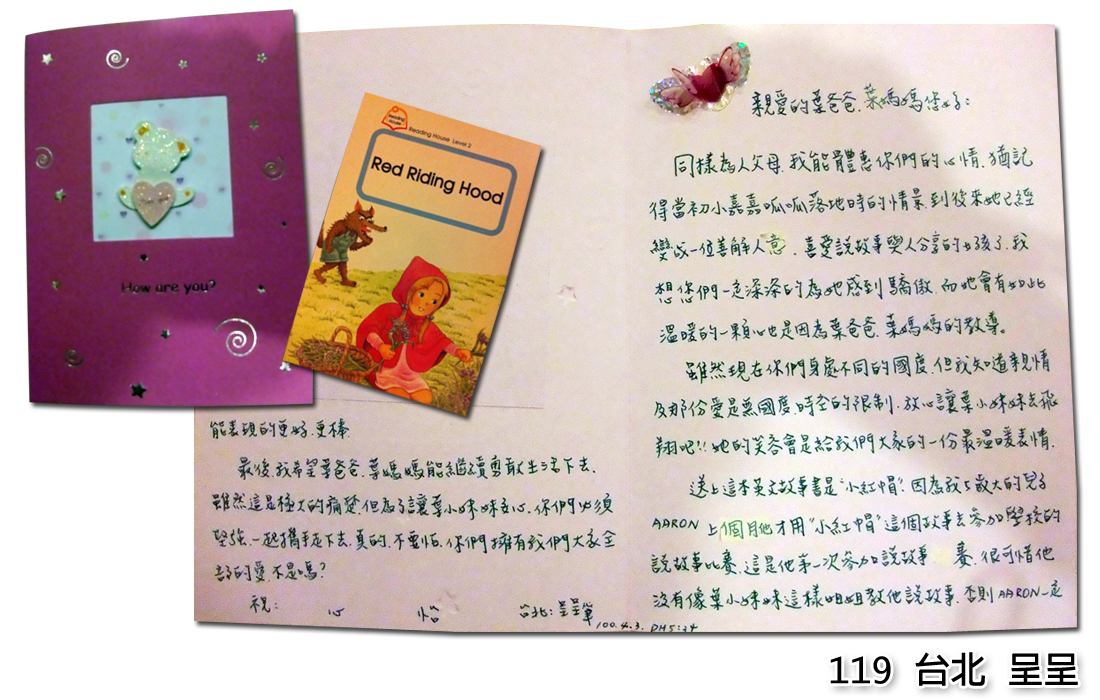 How are you?
Reading House
Reading House Level 2
Red Riding Hood
親愛的葉爸爸、葉媽媽您好:
同樣為人父母,我能體恵你們的心情,猶記
得當初小嘉嘉呱呱落地時的情景,到後來她已經
變成一位善解人意、喜愛說故事與人分享的女孩了,我
想您們一定深深的為她感到驕傲,而她會有如此
溫暖的一顆心也是因為葉爸爸、葉媽媽的教導。
雖然現在你們身處不同的國度,但我知道親情
及那份愛是無國度、時空的限制,放心讓葉小妹妹去飛
翔吧!!她的笑容會是給我們大家的一份最溫暖表情.
送上這本英文故事書是"小紅帽",因為我上最大的兒子
AARON上個月他才用"小紅帽"這個故事去參加學校的
說故事比賽,這是他第一次參加說故事 賽,很可惜他
沒有像葉小妹妹這樣姐姐教他說故事,否則AARON一定
能表現的更好、更棒.
最後,我希望葉爸爸、葉媽媽能繼續勇敢生活下去,
雖然這是極大的痛楚,但為了讓葉小妹妹安心,你們必須
堅強,一起攜手走下去,真的,不要怕,你們擁有我們大家全
部的愛不是嗎?
祝: 心 怡 台北:呈呈筆
100.4.3. PM5:34
119 台北 呈呈